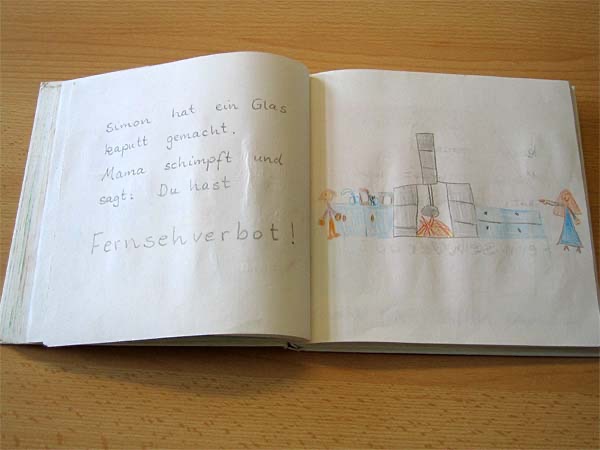 Simon hat ein Glas
kaputt gemacht.
Mama schimpft und
sagt: Du hast
Fernsehverbot!